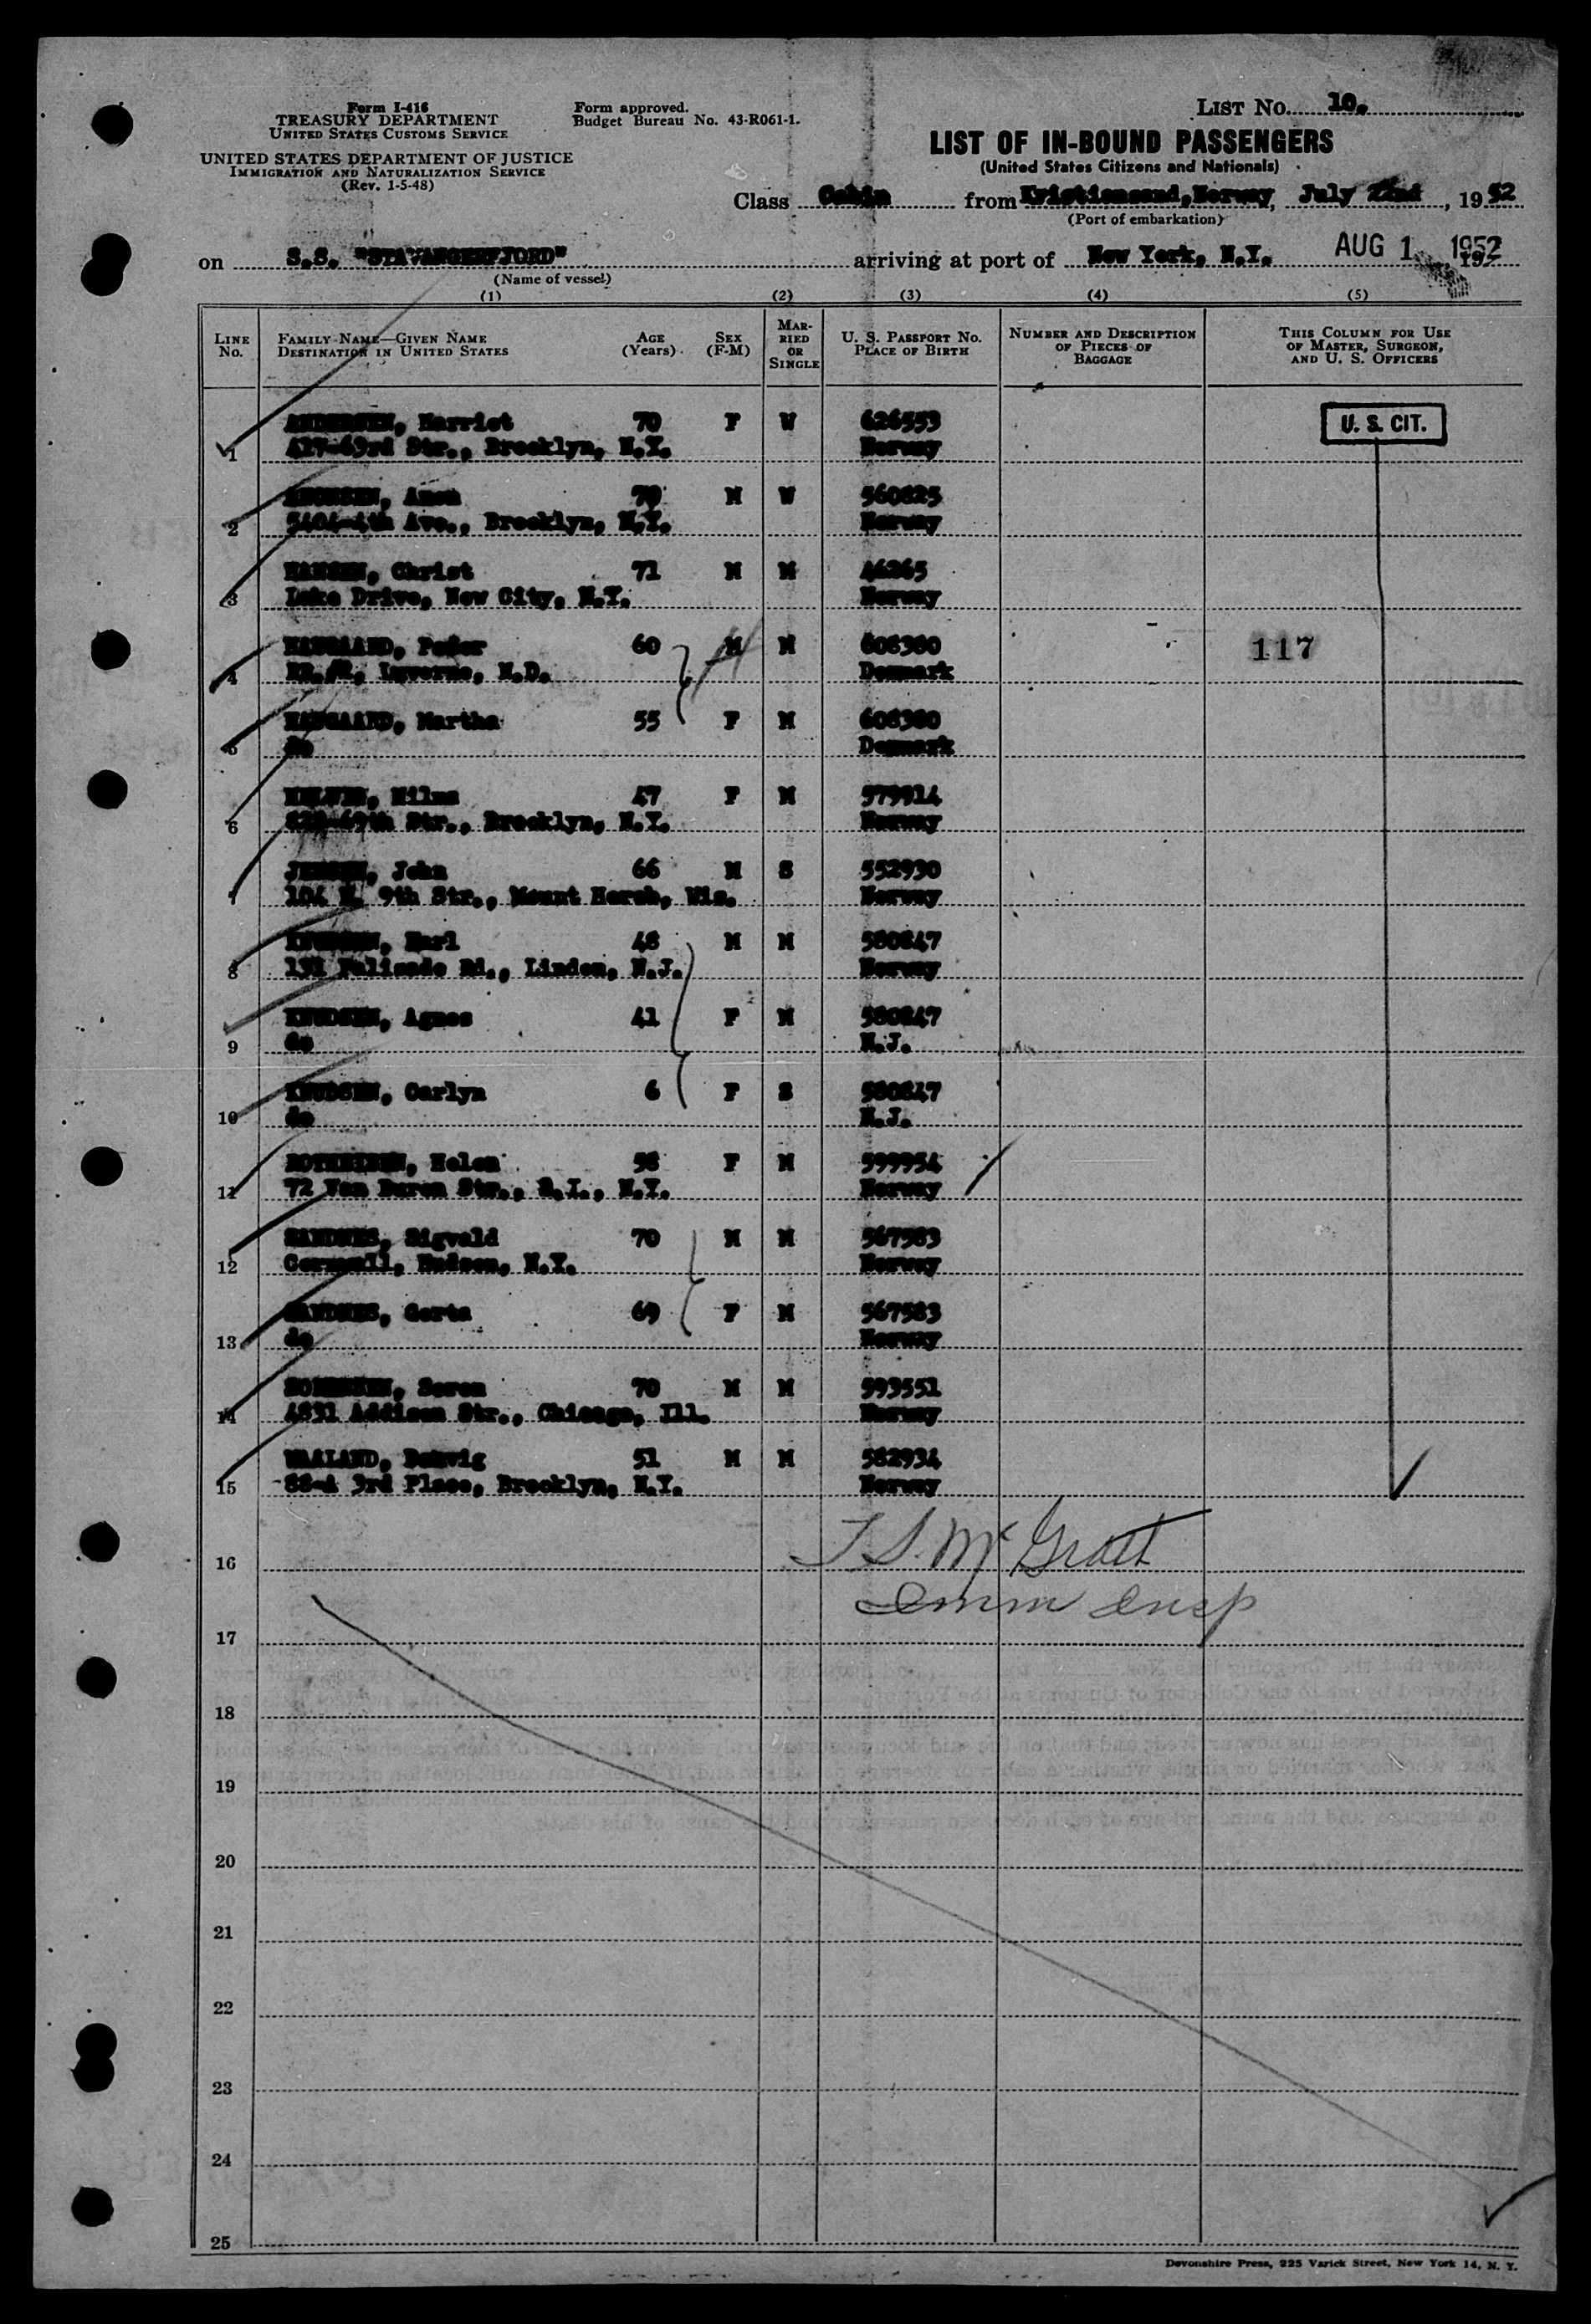 Form I-416
TREASURY DEPARTMENT
UNITED STATES CUSTOMS SERVICE
UNITED STATES DEPARTMENT OF JUSTICE
IMMIGRATION AND NATURALIZATION SERVICE
(Rev. 1-5-48)
Form approved.
Budget Bureau No. 43-R061-1.
LIST No. 10.
LIST OF IN-BOUND PASSENGERS
(United States Citizens and Nationals)
Class Cabin from Kristiansand, Norway, July 22nd, 1952
(Port of embarkation)
on S.S. "STAVANGERFJORD" arriving at port of New York, N.Y. AUG 1 1952
(Name of vessel)
(1) (2) (3) (4) (5)
LINE No. FAMILY NAME—GIVEN NAME DESTINATION IN UNITED STATES AGE (Years) SEX (F-M) MARRIED OR SINGLE U. S. PASSPORT No. PLACE OF BIRTH NUMBER AND DESCRIPTION OF PIECES OF BAGGAGE THIS COLUMN FOR USE OF MASTER, SURGEON, AND U. S. OFFICERS
ANDERSEN, Harriet 70 F W 626553 U. S. CIT.
1 427-63rd Str., Brooklyn, N.Y. Norway
Amon 70 M W 560825
2 5404-4th Ave., Brooklyn, N.Y. Norway
HANSEN, Christ 71 M M 46265
3 Lake Drive, New City, N.Y. Norway
HAUGAARD, Peder 60 M M 608380 117
4 RR. #2, Luverne, N.D. Denmark
HAUGAARD, Martha 55 F M 608380
5 do Denmark
Hilma 47 F M 579914
6 69th Str., Brooklyn, N.Y. Norway
JENSEN, John 66 M S 552930
7 104 N. 9th Str., Mount Horeb, Wis. Norway
KNUDSEN, Karl 48 M M 580847
8 131 Palisade Rd., Linden, N.J. Norway
KNUDSEN, Agnes 41 F M 580847
9 do N.J.
KNUDSEN, Carlyn 6 F S 580847
10 do N.J.
Helen 58 F M 599954
11 72 Van Buren Str., S.I., N.Y. Norway
SANDNES, Sigvald 70 M M 567583
12 Cornwall, Hudson, N.Y. Norway
SANDNES, Gerta 69 F M 567583
13 do Norway
Soren 70 M M 593551
14 4831 Addison Str., Chicago, Ill. Norway
VAALAND, 51 M M 582934
15 88-A 3rd Place, Brooklyn, N.Y. Norway
16 T S. McGratt
Imm Insp
17
18
19
20
21
22
23
24
25
Devonshire Press, 225 Varick Street, New York 14, N. Y.